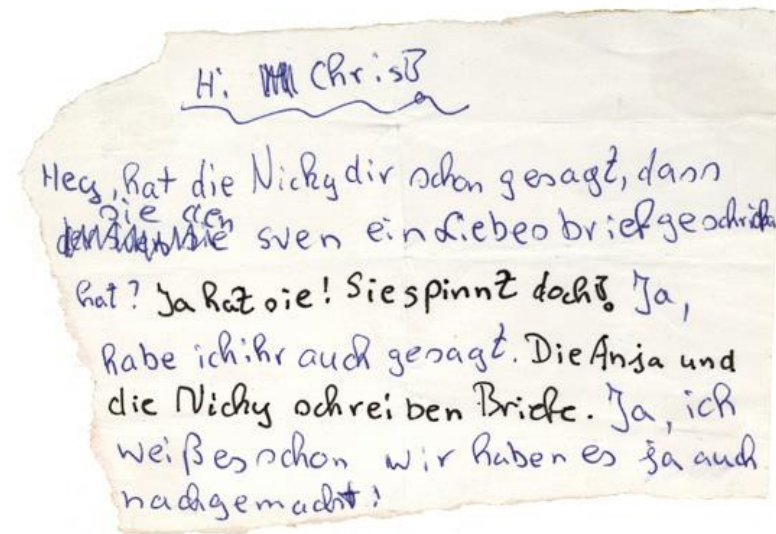 Hi Christ
Hey, hat die Nicky dir schon gesagt, dass
sie den
sven ein Liebesbrief geschrieben
hat? Ja hat sie! Sie spinnt doch! Ja,
habe ich ihr auch gesagt. Die Anja und
die Nicky schreiben Briefe. Ja, ich
weiß es schon wir haben es ja auch
nachgemacht!